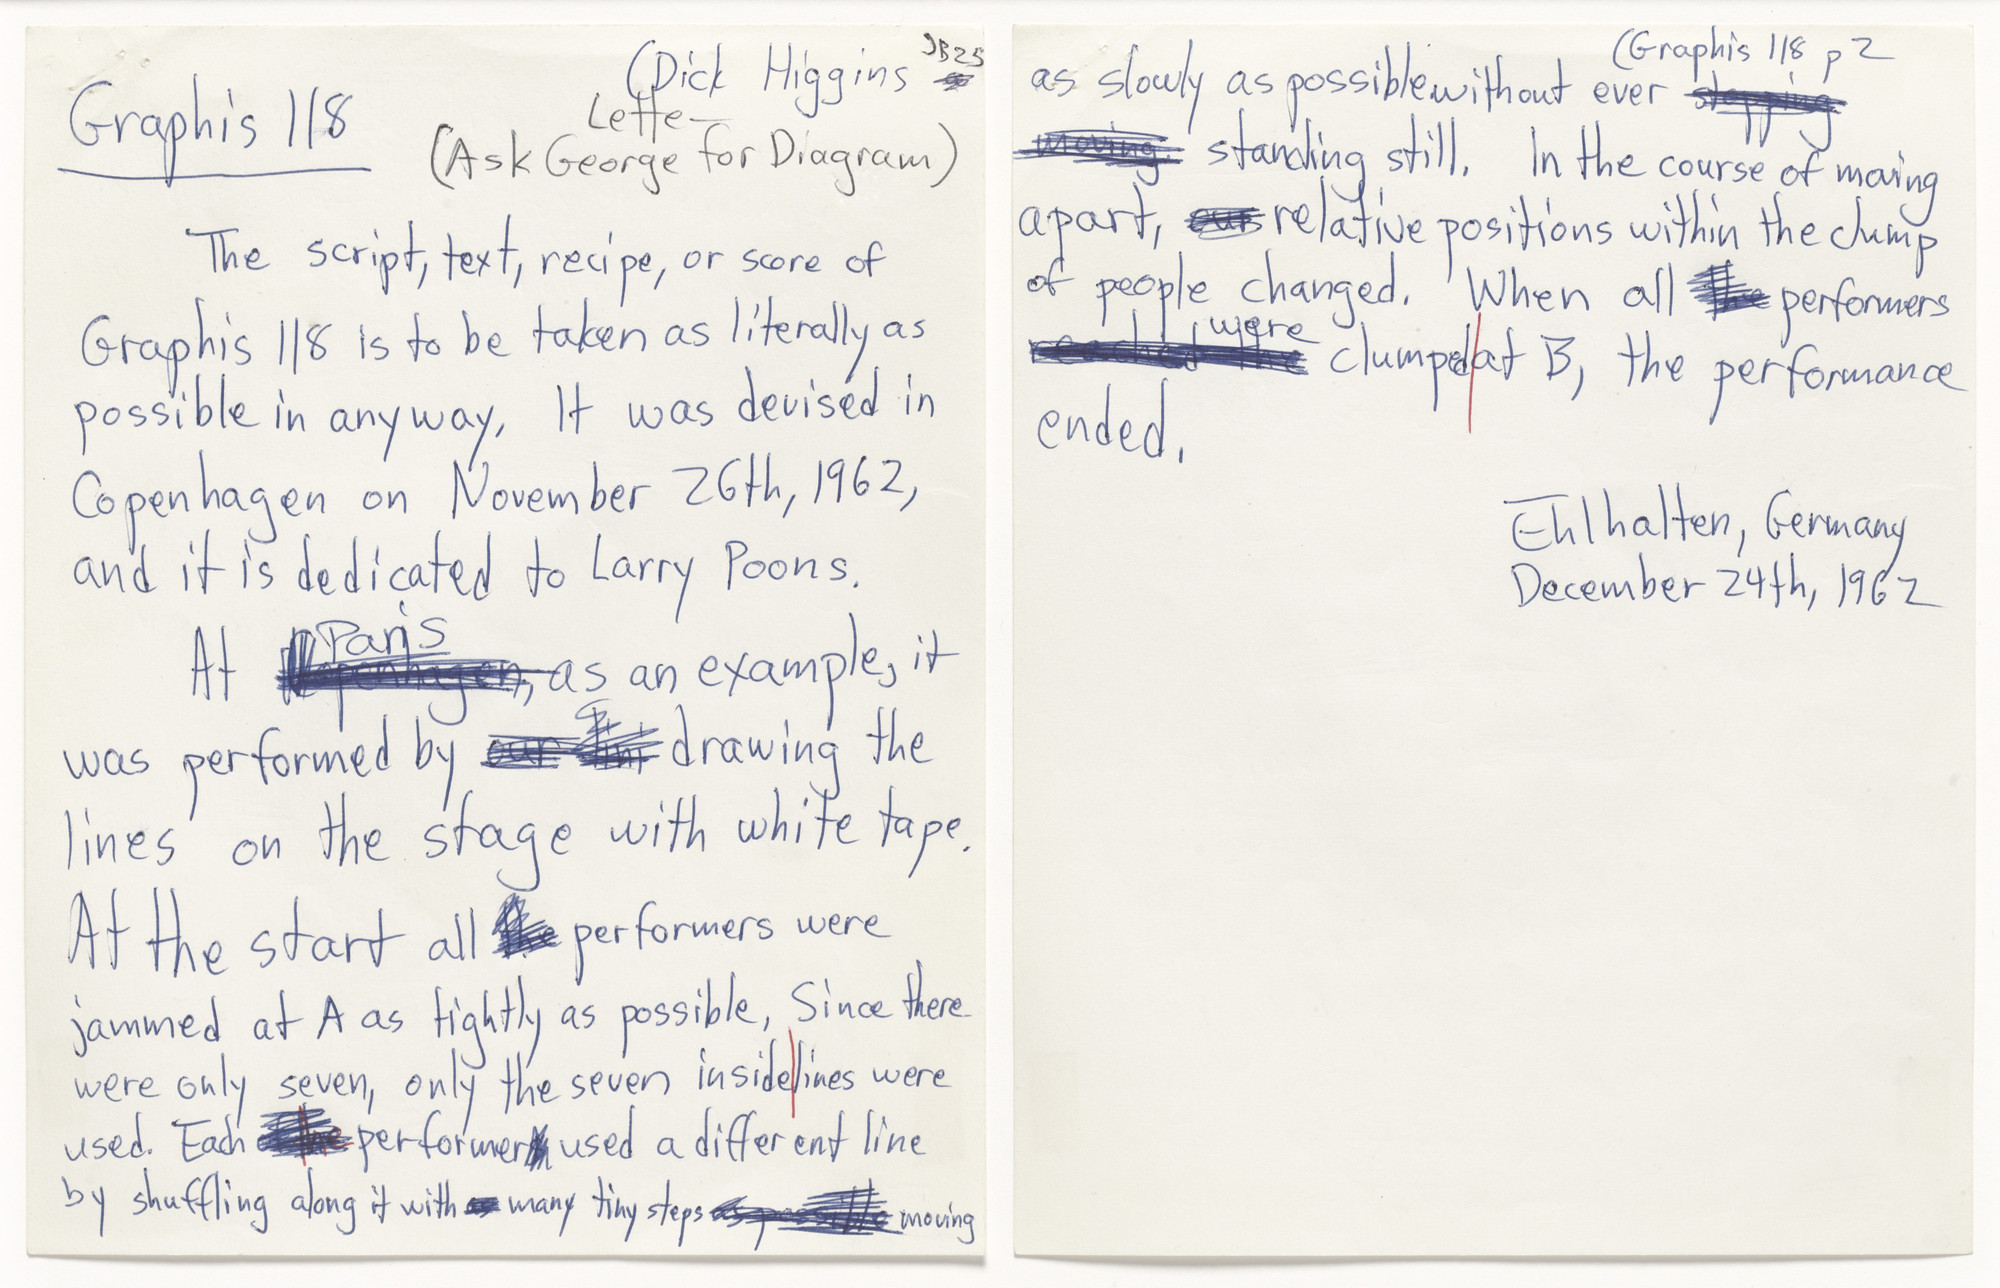 (Dick Higgins JB25
Graphis 118
Lette
(Ask George for Diagram)
The script, text, recipe, or score of
Graphis 118 is to be taken as literally as
possible in anyway. It was devised in
Copenhagen on November 26th, 1962,
and it is dedicated to Larry Poons.
Paris
At Copenhagen, as an example, it
was performed by our drawing the
lines on the stage with white tape.
At the start all the performers were
jammed at A as tightly as possible, Since there
were only seven, only the seven inside lines were
used. Each the performer used a different line
by shuffling along it with many tiny steps as possible moving
(Graphis 118 p 2
as slowly as possible without ever stopping
moving. standing still. In the course of moving
apart, our relative positions within the clump
of people changed. When all the performers
were
reached the clumped at B, the performance
ended.
Ehlhalten, Germany
December 24th, 1962